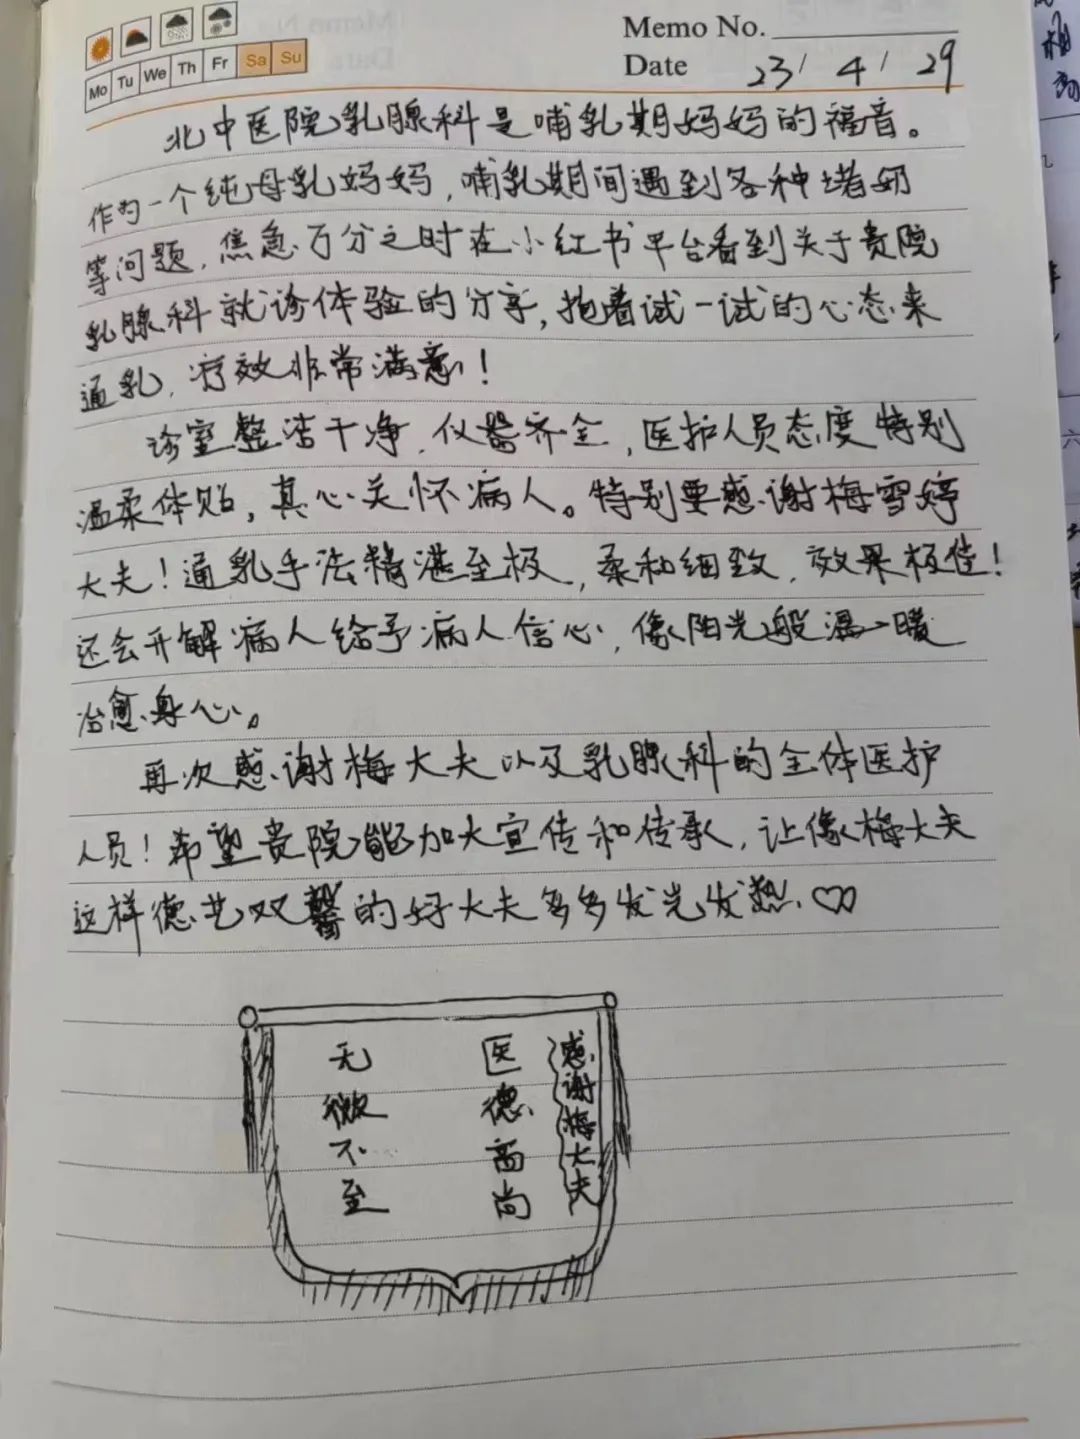 Memo No.
Mo Tu We Th Fr Sa Su
Date 23/ 4/ 29
北中医院乳腺科是哺乳期妈妈的福音。
作为一个纯母乳妈妈,哺乳期间遇到各种堵奶
等问题,焦急万分之时在小红书平台看到关于贵院
乳腺科就诊体验的分享,抱着试一试的心态来
通乳,疗效非常满意!
诊室整洁干净,仪器齐全,医护人员态度特别
温柔体贴,真心关怀病人。特别要感谢梅雪婷
大夫!通乳手法精湛至极,柔和细致,效果极佳!
还会开解病人给予病人信心,像阳光般温暖
治愈身心。
再次感谢梅大夫以及乳腺科的全体医护
人员!希望贵院能加大宣传和传承,让像梅大夫
这样德艺双馨的好大夫多多发光发热.
感谢梅大夫
医德高尚
无微不至